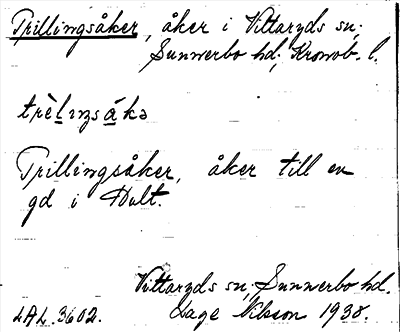 Trillingsåker, åker i Vittaryds sn;
Sunnerbo hd; Kronob. l.
trèlıŋsákə
Trillingsåker, åker till en
gd i Hult.
Vittaryds sn, Sunnerbo hd.
LAL. 3602. Lage Nilsson 1938.